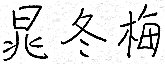 晁冬梅